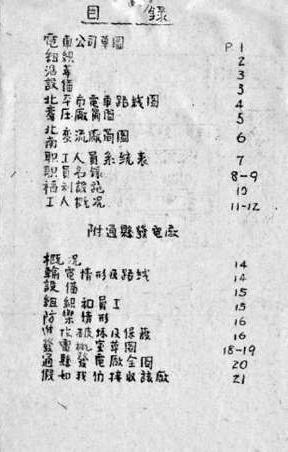 目 錄
電車公司草圖 P.1
組織 2
沿革 3
設備 3
北平市電車路线图 4
变压廠简图 5
北
南变流廠简图 6
职工人員系統表 7
职員名錄 8-9
福利設施 10
工人概况 11-12
附通縣發电廠
概况 14
輸電情形及路线 14
設備 15
組織和員工 15
防禦情形 16
16
發電機室草图 18-19
通縣發電廠全图 20
假如我仿接收該廠 21